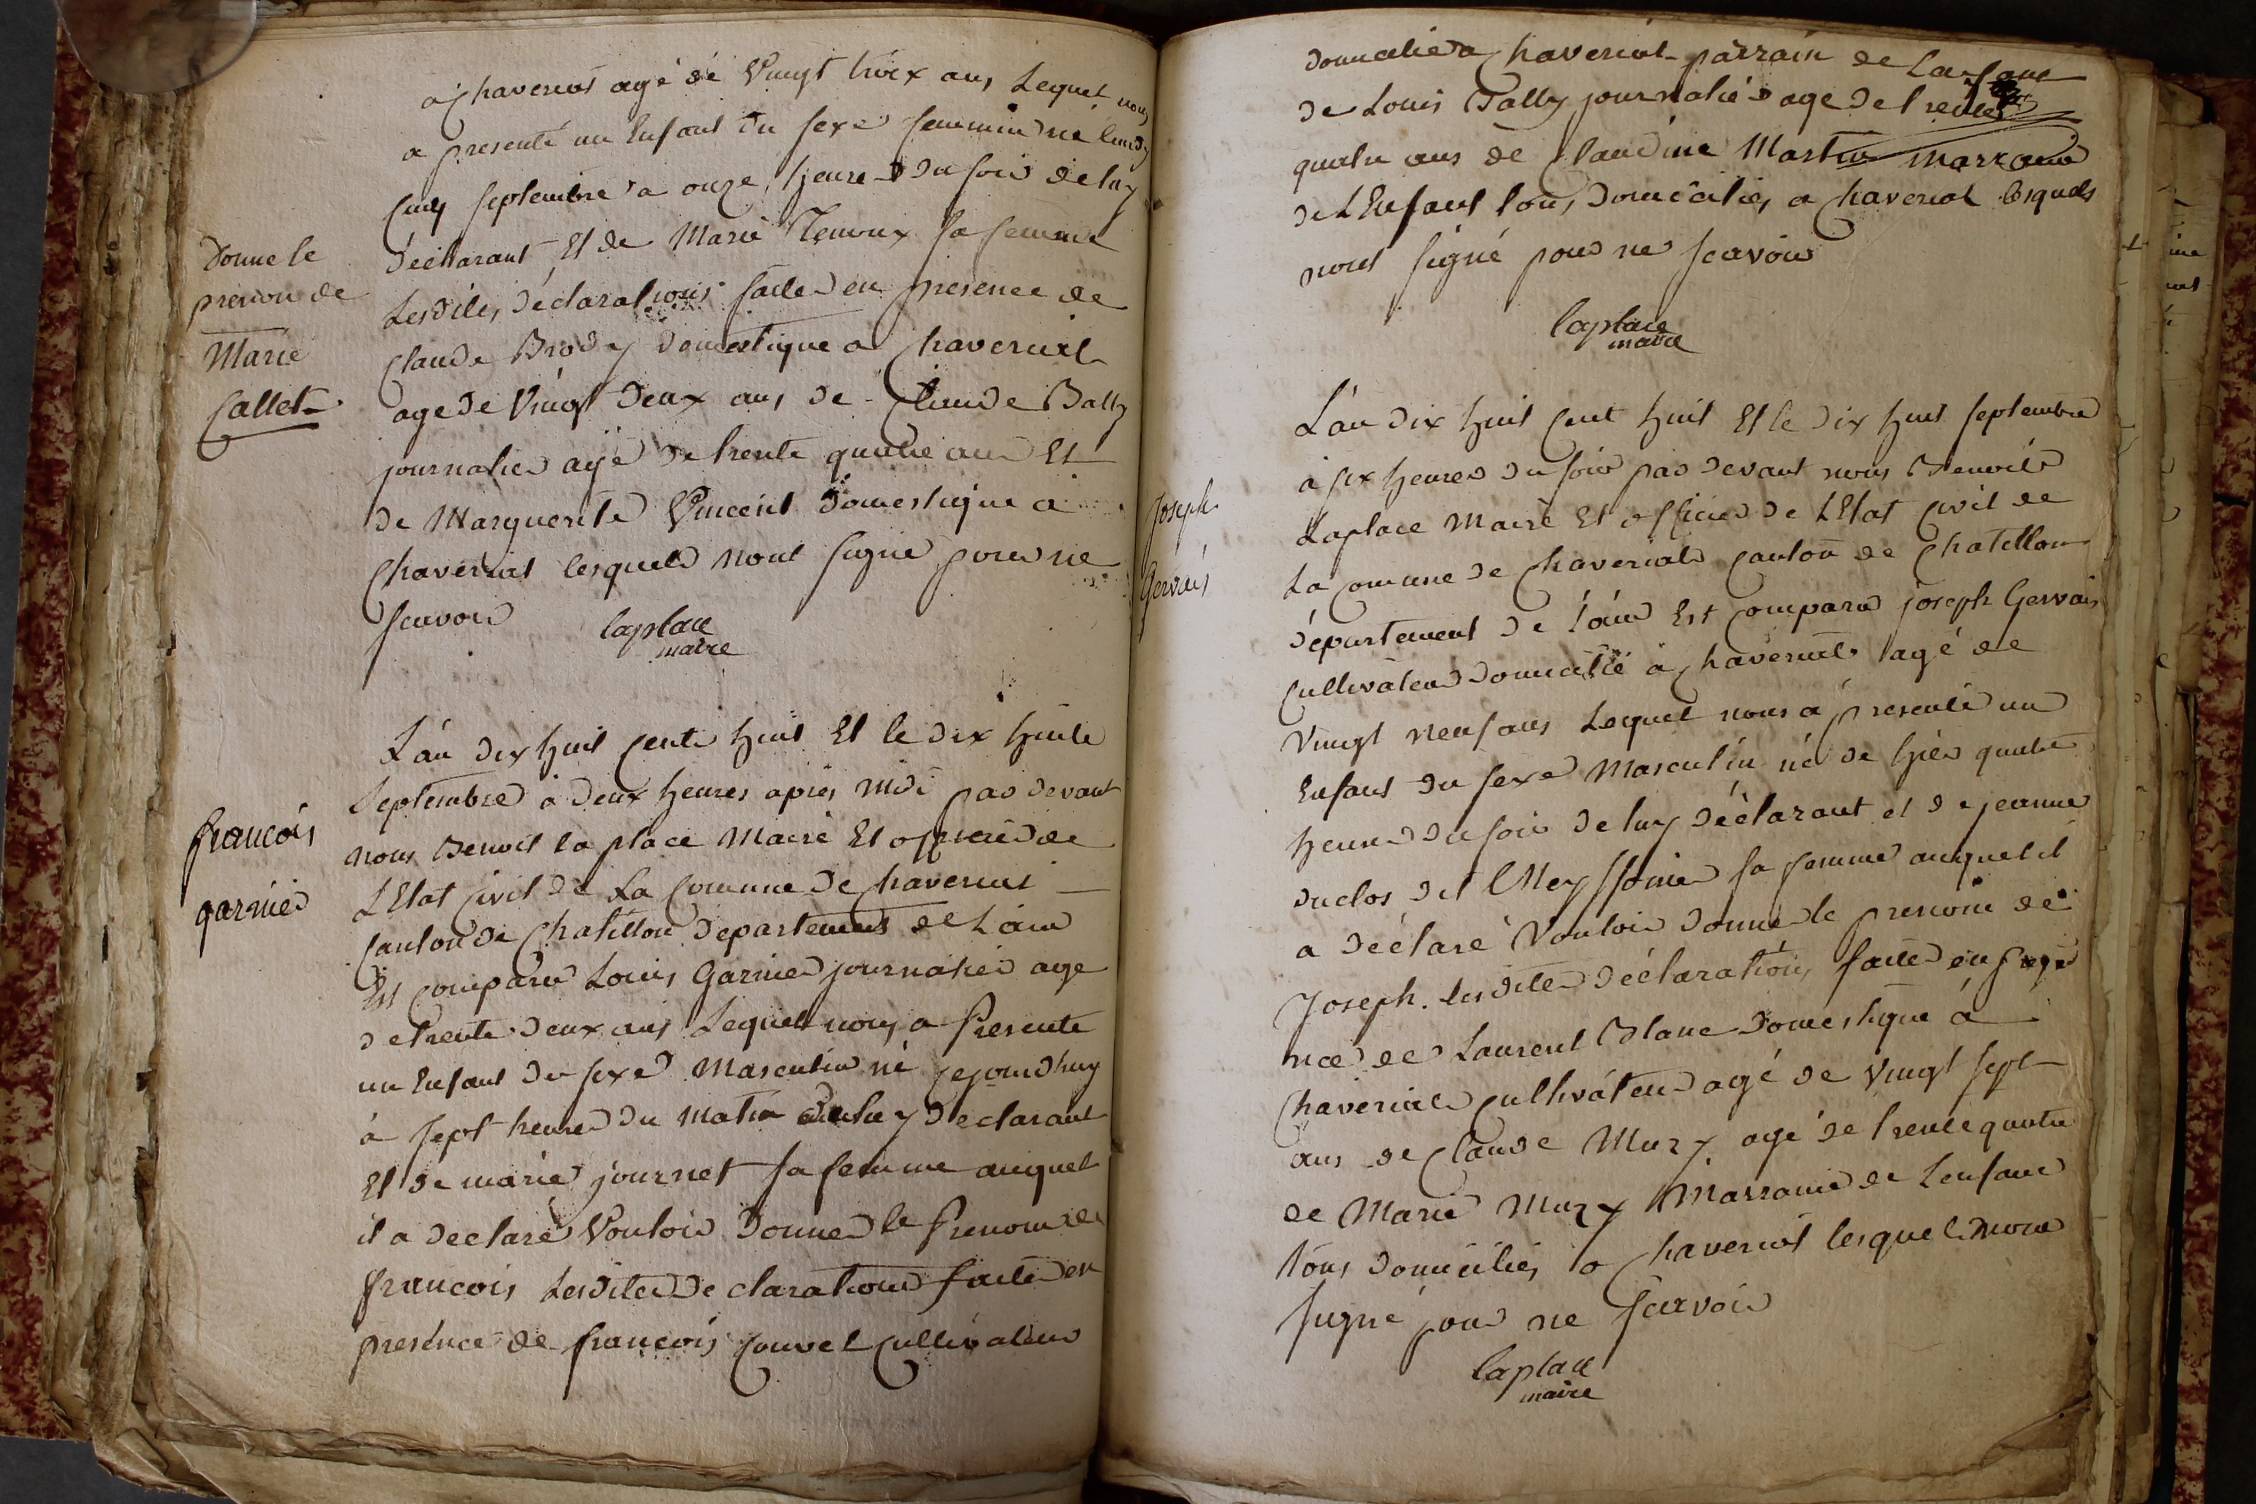 a chaveriat agé de Vingt troix ans Lequel nous
a presenté un Enfant du sexe feminin né lundy
cinq septembre a onze heure du soir de luy
déclarant Et de Marie sa femme
Lesdites déclarations faite en presence de
Claude Brody domestique a Chaveriat
age de Vingt deux ans de Claude Bally
journalier agé de trente quatre ans Et
de Marguerite Vincent domestique a
Chaveriat lesquels nont signé pour ne
scavoir
laplace
maire
Donne le
prenom de
Marie
Callet
francois
garnier
L'an dix huit cents huit Et le dix huite
Septembre a deux heures apres midi par devant
nous Benoit la place Maire Et officier de
L'Etat Civil de La Comune de Chaveriat
Canton de Chatillon Departement de L'ain
Est comparu Louis Garnier journalier age
de trente deux ans Lequel nous a presente
un Enfant du sexe Masculin né cejourdhuy
à sept heure du Matin de luy Declarant
Et de marie journet sa femme auquel
il a declaré Vouloir donner le prenom de
francois Lesdites declarations faite en
presence de francois couvet Cultivateur
domicilié a chaveriat parrain de
de Louis Bally journalié age de trente
quatre ans de Claudine Martin marraine
de L'Enfant tous domicilies a Chaveriat lesquels
nont signé pour ne scavoir
laplace
maire
Joseph
Gervais
L'an dix huit cent huit Et le dix huit septembre
à six heures du soir par devant nous Benoit
Laplace Maire Et officier de L'Etat Civil de
La Comune de Chaveriat Canton de Chatillon
département de l'ain Est comparu joseph Gervais
Cultivateur domicilié à chaveriat agé de
Vingt neuf ans Lequel nous a presenté un
Enfant du sexe Masculin né de hier quatre
heure du soir de luy déclarant et de jeanne
duclos dit sa femme auquel il
a déclaré Vouloir donné le prenom de
Joseph. lesdites déclarations faite en prese
nce de Laurent Blanc domestique à
Chaveriat cultivateur agé de Vingt sept
ans de Claude Mury agé de trente quatre
de Marie Mury Marraine de Lenfant
tous domiciliés a chaveriat lesquel nont
signé pour ne scavoir
laplace
maire